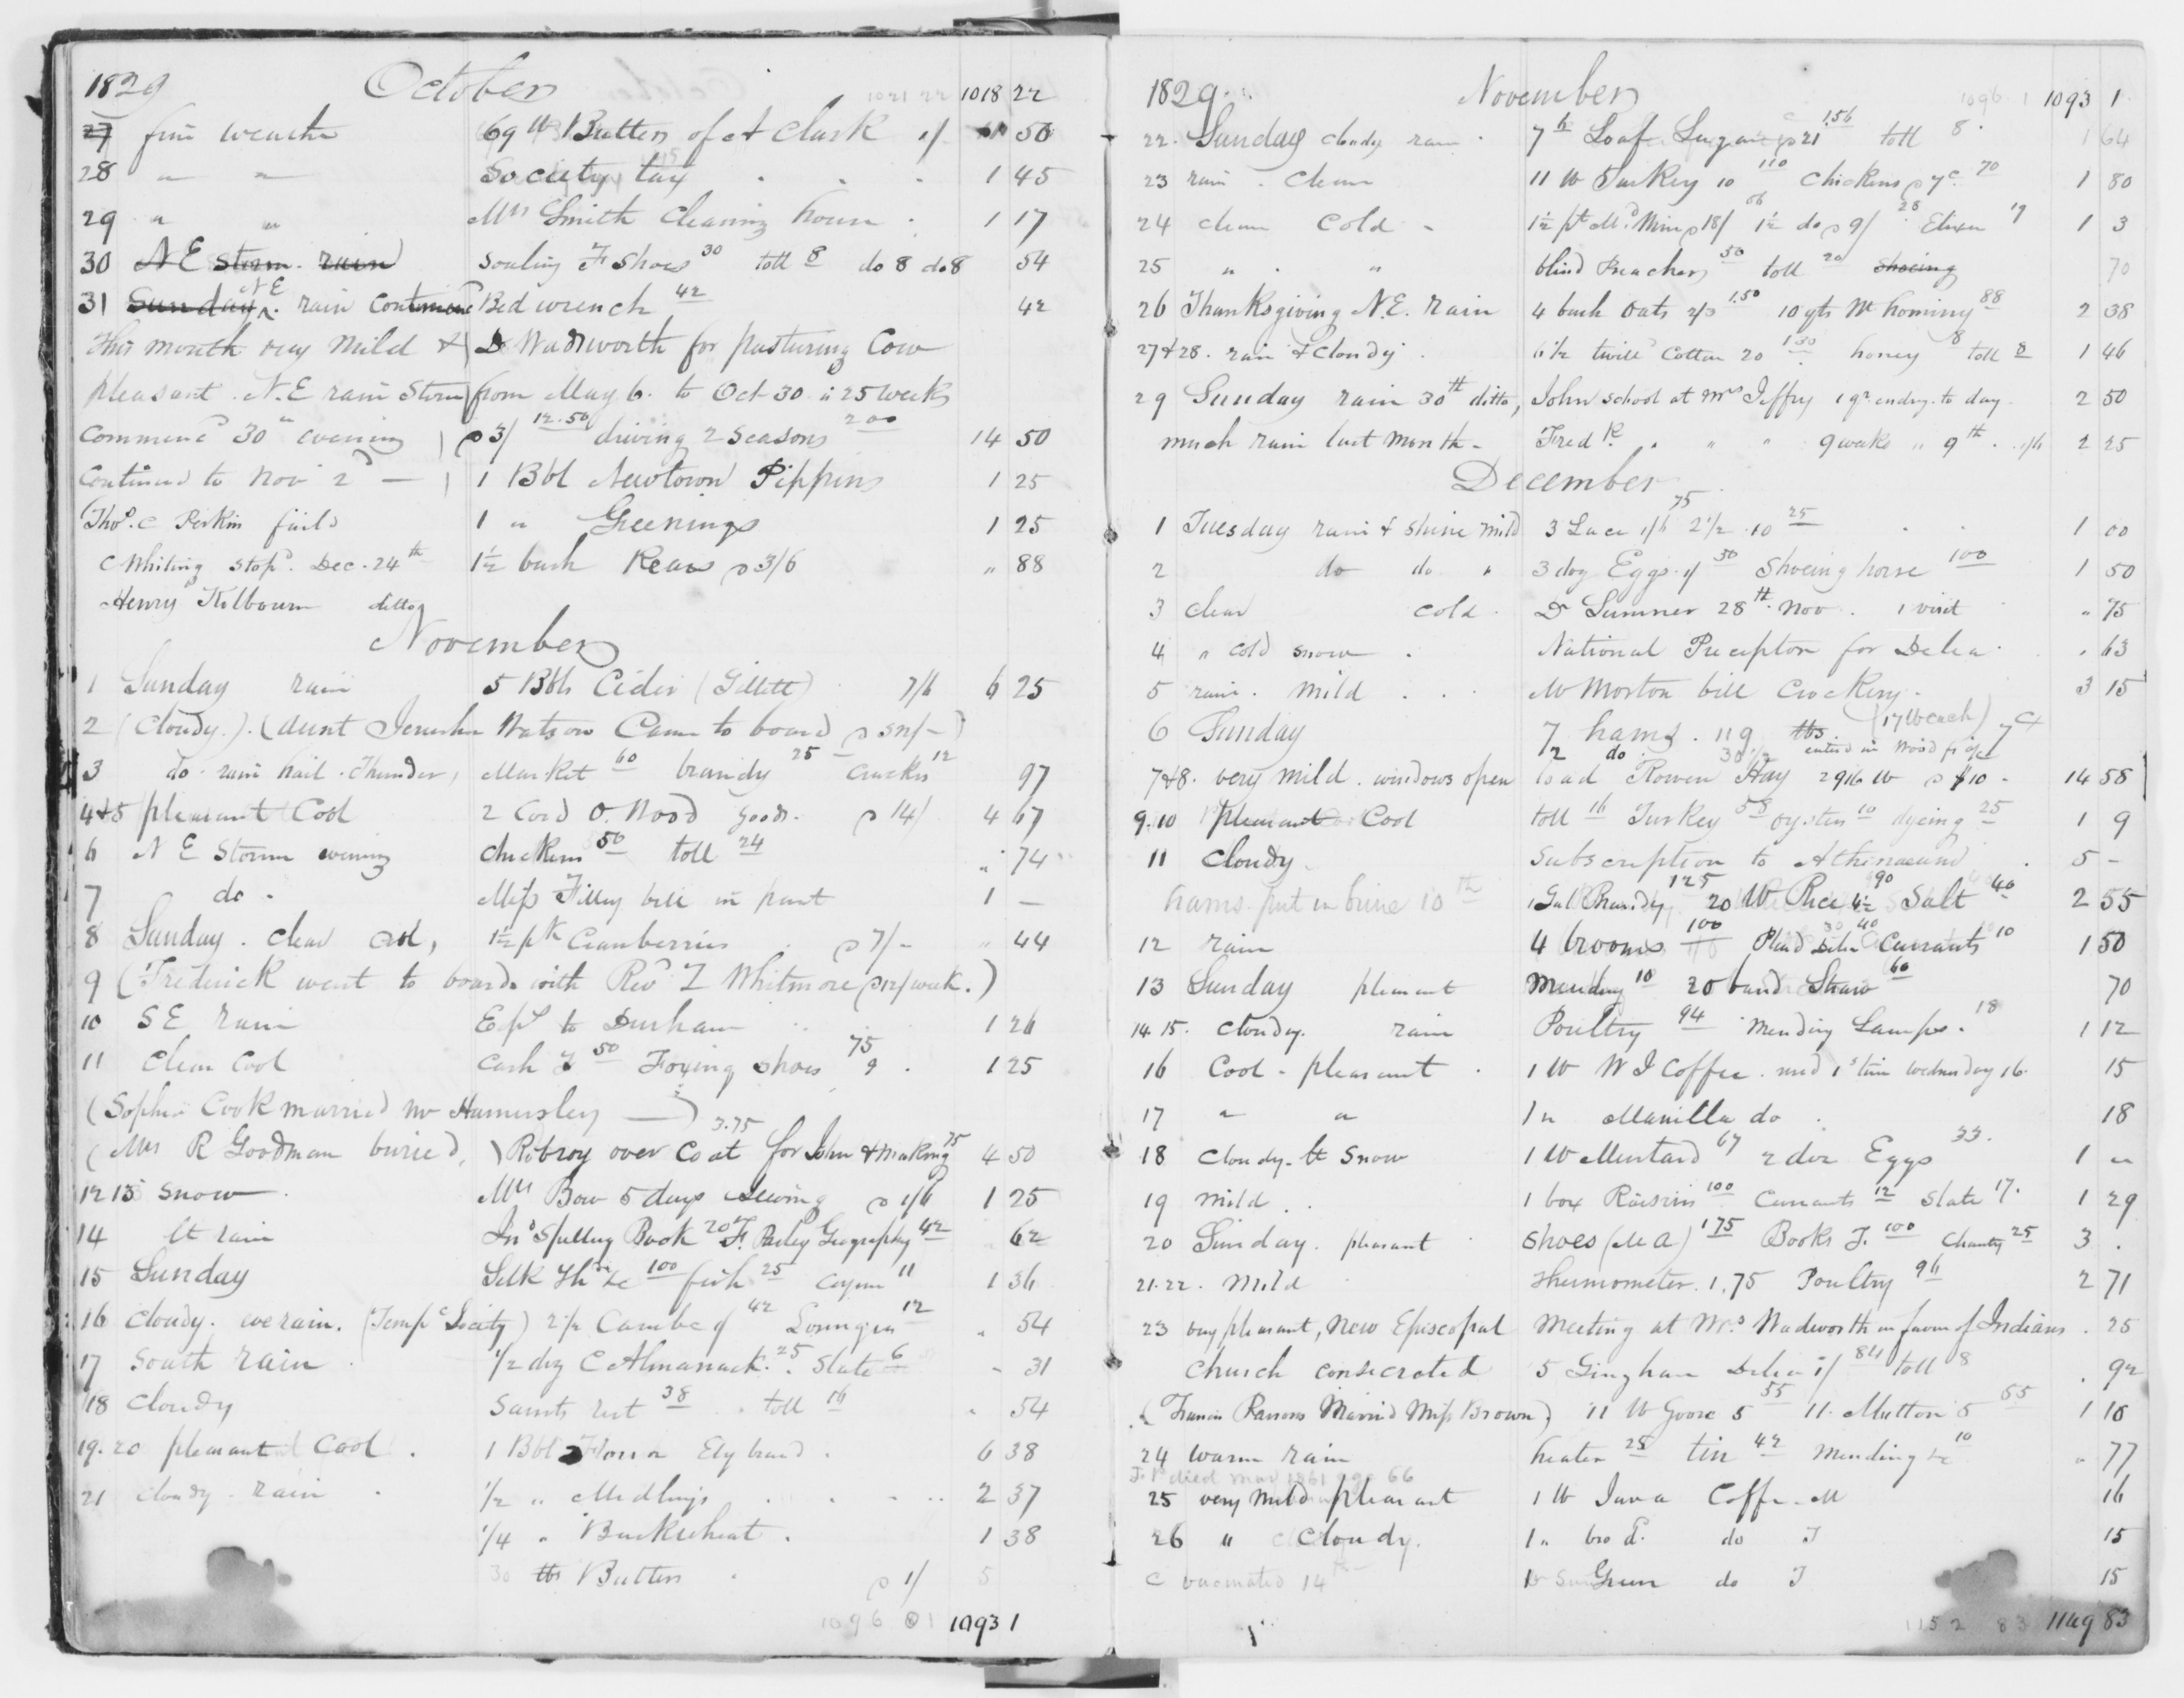 1829 October 1021 22 1018 22
27 fine weather 69 lb Butter of A Clark 1/ 50
28 " " Society tax 1 45
29 " " Mrs Smith Cleaning house 1 17
30 N E storm. rain Soaling F Shoes 30 toll 8 do 8 do 8 54
31 Sunday N E rain continued Bed wrench 42 42
This month very mild & Dr Wadsworth for pasturing Cow
pleasant. N.E rain Storm from May 6. to Oct 30 is 25 weeks
Commencd 30th evening @ 3/ 12.50 driving 2 Seasons 2 00 14 50
Continued to Nov 2d — 1 Bbl Newtown Pippins 1 25
Thos. C Perkins faild 1 " Greenings 1 25
C Whiting stopd. Dec. 24th 1½ bush Pears @ 3/6 " 88
Henry Kilbourn ditto
November
1 Sunday rain 5 Bbls Cider (Gillett) 7/6 6 25
2 (Cloudy.) (Aunt Jerusha Watson Came to board @ 12/-)
3 do. rain hail. Thunder, Market 60 brandy 25 Crackers 12 97
4&5 pleasant Cool 2 Cord O. Wood Goods. @ 14/ 4 67
6 N E Storm evening Chickens 50 toll 24 " 74
7 do. Miss Tilley bill in part 1 —
8 Sunday. clear cool, 1½ pk Cranberries @ 7/- " 44
9 (Frederick went to board with Revd Z Whitmore @ 12/ week.)
10 S E rain Exps to Durham 1 26
11 Clear Cool Cash F 50 Foxing shoes 75 1 25
(Sophia Cook married Mr Hamersley —)
(Mrs R Goodman buried,) Robroy over Coat for John 3.75 & making 75 4 50
12 13 Snow Mrs Bow 5 days sewing @ 1/6 1 25
14 lt rain Jns Spelling Book 20 F. Parley Geography 42 62
15 Sunday Silk Thd &c 100 fish 25 cayen 11 1 36
16 Cloudy. eve rain. (Tempe Society) 2½ Cambc 42 Lozenges 12 " 54
17 South rain ½ doz C Almanack. 25 Slate 6 - 31
18 Cloudy Saints rest 38 toll 16 " 54
19.20 pleasant Cool 1 Bbl Flour Ely brand. 6 38
21 cloudy. rain ½ " Midlings 2 37
¼ " Buckwheat. 1 38
30 lbs Butter @ 1/ 5
1096 01 1093 1
1829 November 1096 1 1093 1
22. Sunday cloudy rain 7 lb Loaf Sugar @ 21 1.56 toll 8 1 64
23 rain. Clear 11 lb Turkey 10 110 Chickens @ 7c 70 1 80
24 clear Cold 1½ pt Md. Wine @ 18/ 56 1½ do @ 9/ 28 Elixer 19 1 3
25 " " blind Preacher 50 toll 20 Shoeing 70
26 Thanksgiving N.E. rain 4 bush Oats 2/3 1.50 10 qts Wt hominy 88 2 38
27&28. rain & Cloudy 6½ twilld Cotton 20 1 30 honey 8 toll 8 1 46
29 Sunday rain 30th ditto, John school at Mrs Jeffry 1 qr. endng. to day 2 50
much rain last month - Fredk. " " 9 weeks " 9th. 1/6 2 25
December
1 Tuesday rain & shine mild 3 Lace 1/6 75 2½ .10 25 1 00
2 do do " 3 doz Eggs 1/ 50 Shoeing horse 100 1 50
3 clear cold. Dr Sumner 28th Nov. 1 visit " 75
4 " cold snow. National Preceptor for Delia . 63
5 rain. mild Mr Morton bill Crockery. 3 15
6 Sunday 7 hams. 119 lbs. (17 lb each) 7c
2 do entered in Wood page
7&8. very mild. windows open load Rowen Hay 2916 lb @ $10 - 14 58
9.10 pleasant Cool toll 16 Turkey 58 oysters 10 dyeing 25 1 9
11 Cloudy. Subscription to Athenaeum. 5 -
hams put in brine 10th 1 Gal Brandy 125 20 lb Rice 4½ 90 Salt 40 2 55
12 rain 4 brooms 100 Plaid Delia 40 Currants 10 1 50
13 Sunday pleasant Mending 10 20 band Straw 60 70
14 15. Cloudy. rain Poultry 94 Mending Lamps. 18 1 12
16 Cool - pleasant 1 lb W I Coffee. used 1st time Wednesday 16. 15
17 " " 1 " Manilla do 18
18 Cloudy. lt Snow 1 lb Mustard 67 2 doz Eggs 33. 1 "
19 mild.. 1 box Raisins 100 Currants 12 Slate 17. 1 29
20 Sunday. pleasant Shoes (M A) 1 75 Books F. 100 Charity 25 3 .
21.22. Mild Thermometer. 1.75 Poultry 96 2 71
23 very pleasant, New Episcopal Meeting at Mr.s Wadworth in favour of Indians. 25
Church consecrated 5 Gingham Delia 1/ 84 toll 8 . 92
(Francis Parsons Married Miss Brown) 11 lb Goose 5 55 11. Mutton 5 55 1 10
24 warm rain heater 25 tin 42 Mending &c 10 " 77
F. P. died Mar 1861 age 66
25 very mild pleasant 1 lb Java Coffee. M 16
26 " Cloudy. 1 " do 15
C vaccinated 14th Green do 15
1152 83 1149 83